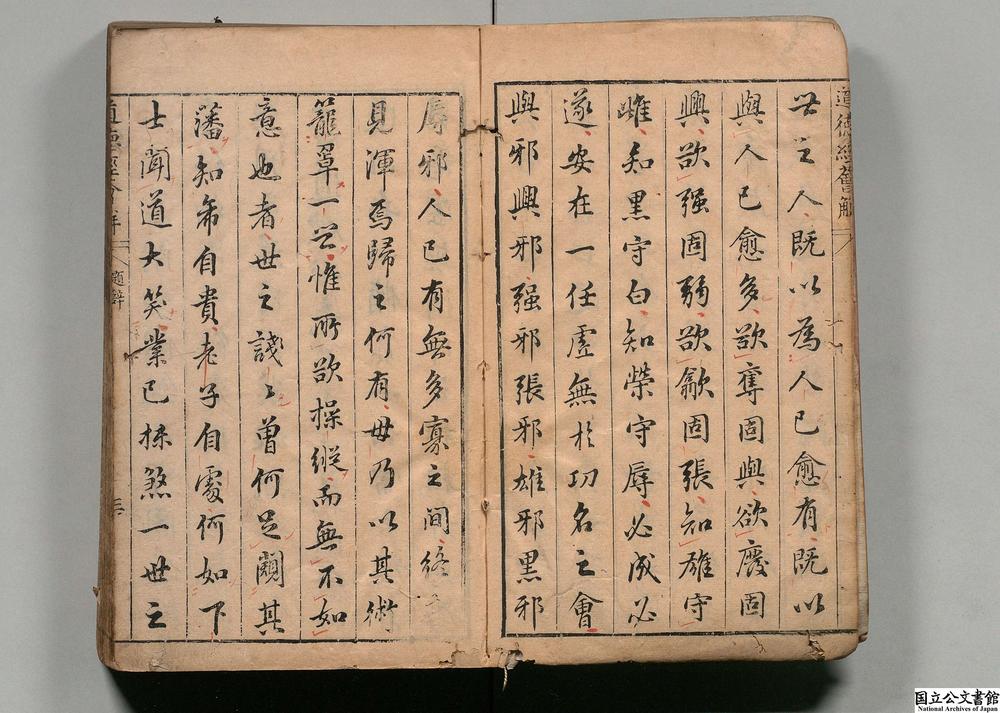 道德經薈解
世之人既以為人已愈有既以
與人已愈多欲奪固與欲廢固
興欲强固弱欲歙固張知雄守
雌知黒守白知榮守辱必成必
遂安在一任虛無於功名之會
與邪興邪强邪張邪雄邪黒邪
辱邪人已有無多寡之間終
見渾焉歸之何有毋乃以其術
籠罩一世惟所欲操縱而無不如
意也者世之諓〻曾何足闚其
藩知希自貴老子自處何如下
士聞道大笑業已抹煞一世之
道德經薈解
題辭
国立公文書館
National Archives of Japan